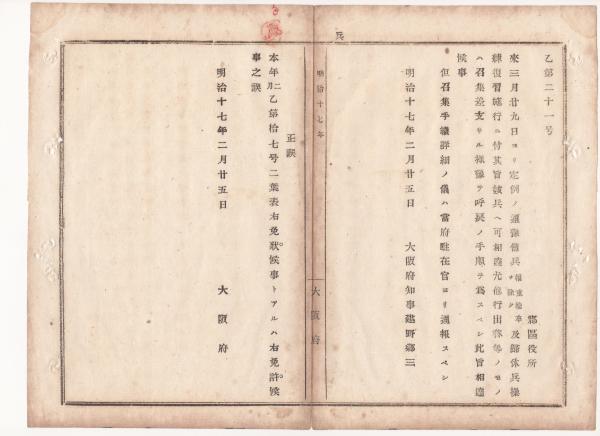 兵
乙第二十一号
郡區役所
來三月廿九日ヨリ定例ノ通豫備兵輜重輸卒ヲ除ク及歸休兵操
練復習施行ニ付其旨該兵ヘ可相達尤他行出稼等ノモノ
ハ召集差支サル樣豫テ呼戻ノ手順ヲ爲スヘシ此旨相達
候事
但召集手續詳細ノ儀ハ當府駐在官ヨリ通報スヘシ
明治十七年二月廿五日
大阪府知事建野郷三
明治十七年
大阪府
正誤
本年二月乙第拾七号二葉表右免狀候事トアルハ右免許候
事之誤
明治十七年二月廿五日
大阪府